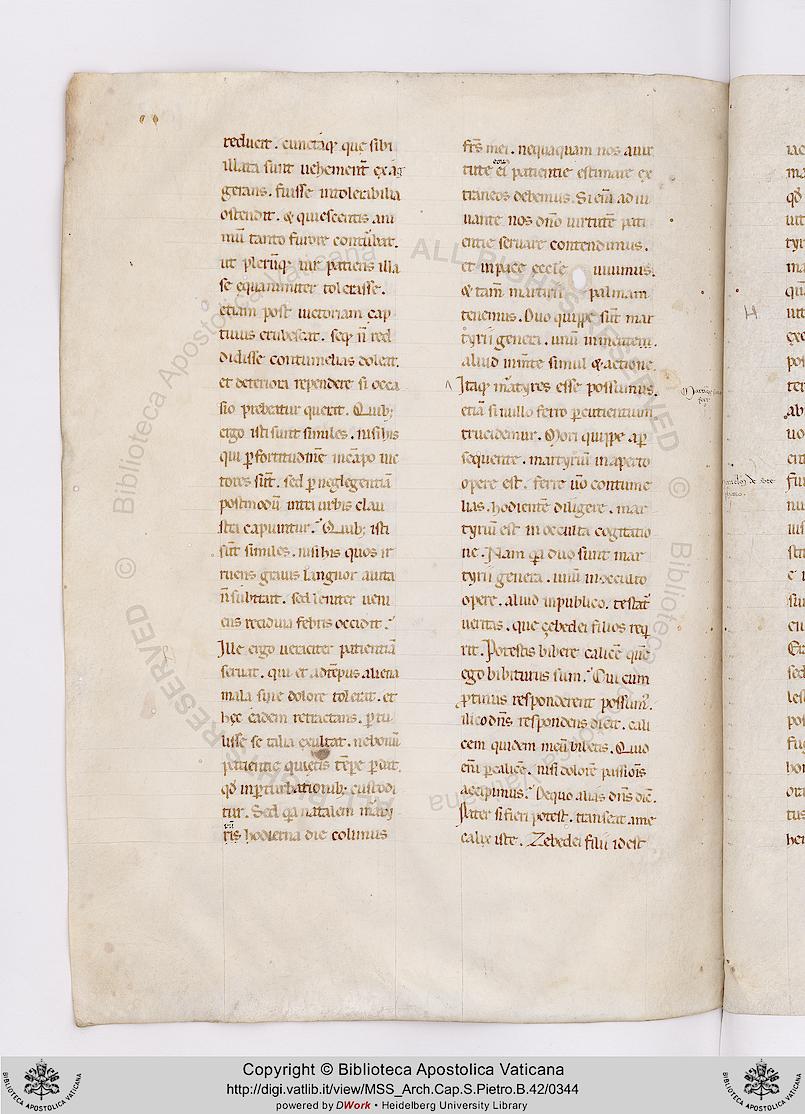 reducit . cunctaq; que sibi
illata sunt uehementˀ exag
gerans . fuisse intolerabilia
ostendit . & quiescentis ani
mū tanto furore conturbat .
ut plerūq; uir patiens illa
se equanimiter tolerasse .
etiam post uictoriam cap
tiuus erubescat . seq; n̄ red
didisse contumelias doleat .
et deteriora rependere si occa
sio prebeatur querit . Quib;
ergo isti sunt similes . nisi his
qui p fortitudinē in cāpo uic
tores sūt . sed p neglegentiā
postmodū intra urbis clau
stra capiuntur . Quib; isti
sūt similes . nisi his quos ir
ruens grauis languor a uita
n̄ subtrait . sed leniter ueni
ens recidiua febris occidit .
Ille ergo ueraciter patientiā
seruat . qui et ad tēpus aliena
mala sine dolore tolerat . et
hęc eadem retractans . ptu
lisse se talia exultat . ne bonū
patientie quietis tēpe pdat .
qd̄ in pturbationib; custodi
tur . Sed qa natalem marty
ris hodierna die colimus
frs̄ mei . nequaquam nos a uir
tute ei patientie estimare ex
traneos debemus . Si eni ad iu
uante nos dn̄o uirtutē pati
entie seruare contendimus .
et in pace eccłe uiuimus .
& tam̄ martyrii palmam
tenemus . Duo quippe sūt mar
tyrii genera . unū in mente .
aliud in mte simul & actione .
Itaq; martyres esse possumus .
etiā si nullo ferro pcutientium
trucidemur . Mori quippe a p
sequente . martyriū in aperto
opere est . ferre uo contume
lias . hodientē diligere . mar
tyriū est in occulta cogitatio
ne . Nam qa duo sunt mar
tyrii genera . unū in occulto
opere . aliud in publico . testatˀ
ueritas . que ęebedei filios req
rit . Potestis bibere calicē quē
ego bibiturus sum . Qui cum
ptinus responderent possum .
ilico dn̄s respondens dicit . cali
cem quidem meū bibetis . Quid
eni p calicē . nisi dolorē passionis
accipimus . De quo alias dn̄s dic̄ .
Pater si fieri potest . transeat a me
calix iste . Zebedei filii id est
Copyright © Biblioteca Apostolica Vaticana
http://digi.vatlib.it/view/MSS_Arch.Cap.S.Pietro.B.42/0344
powered by DWork • Heidelberg University Library